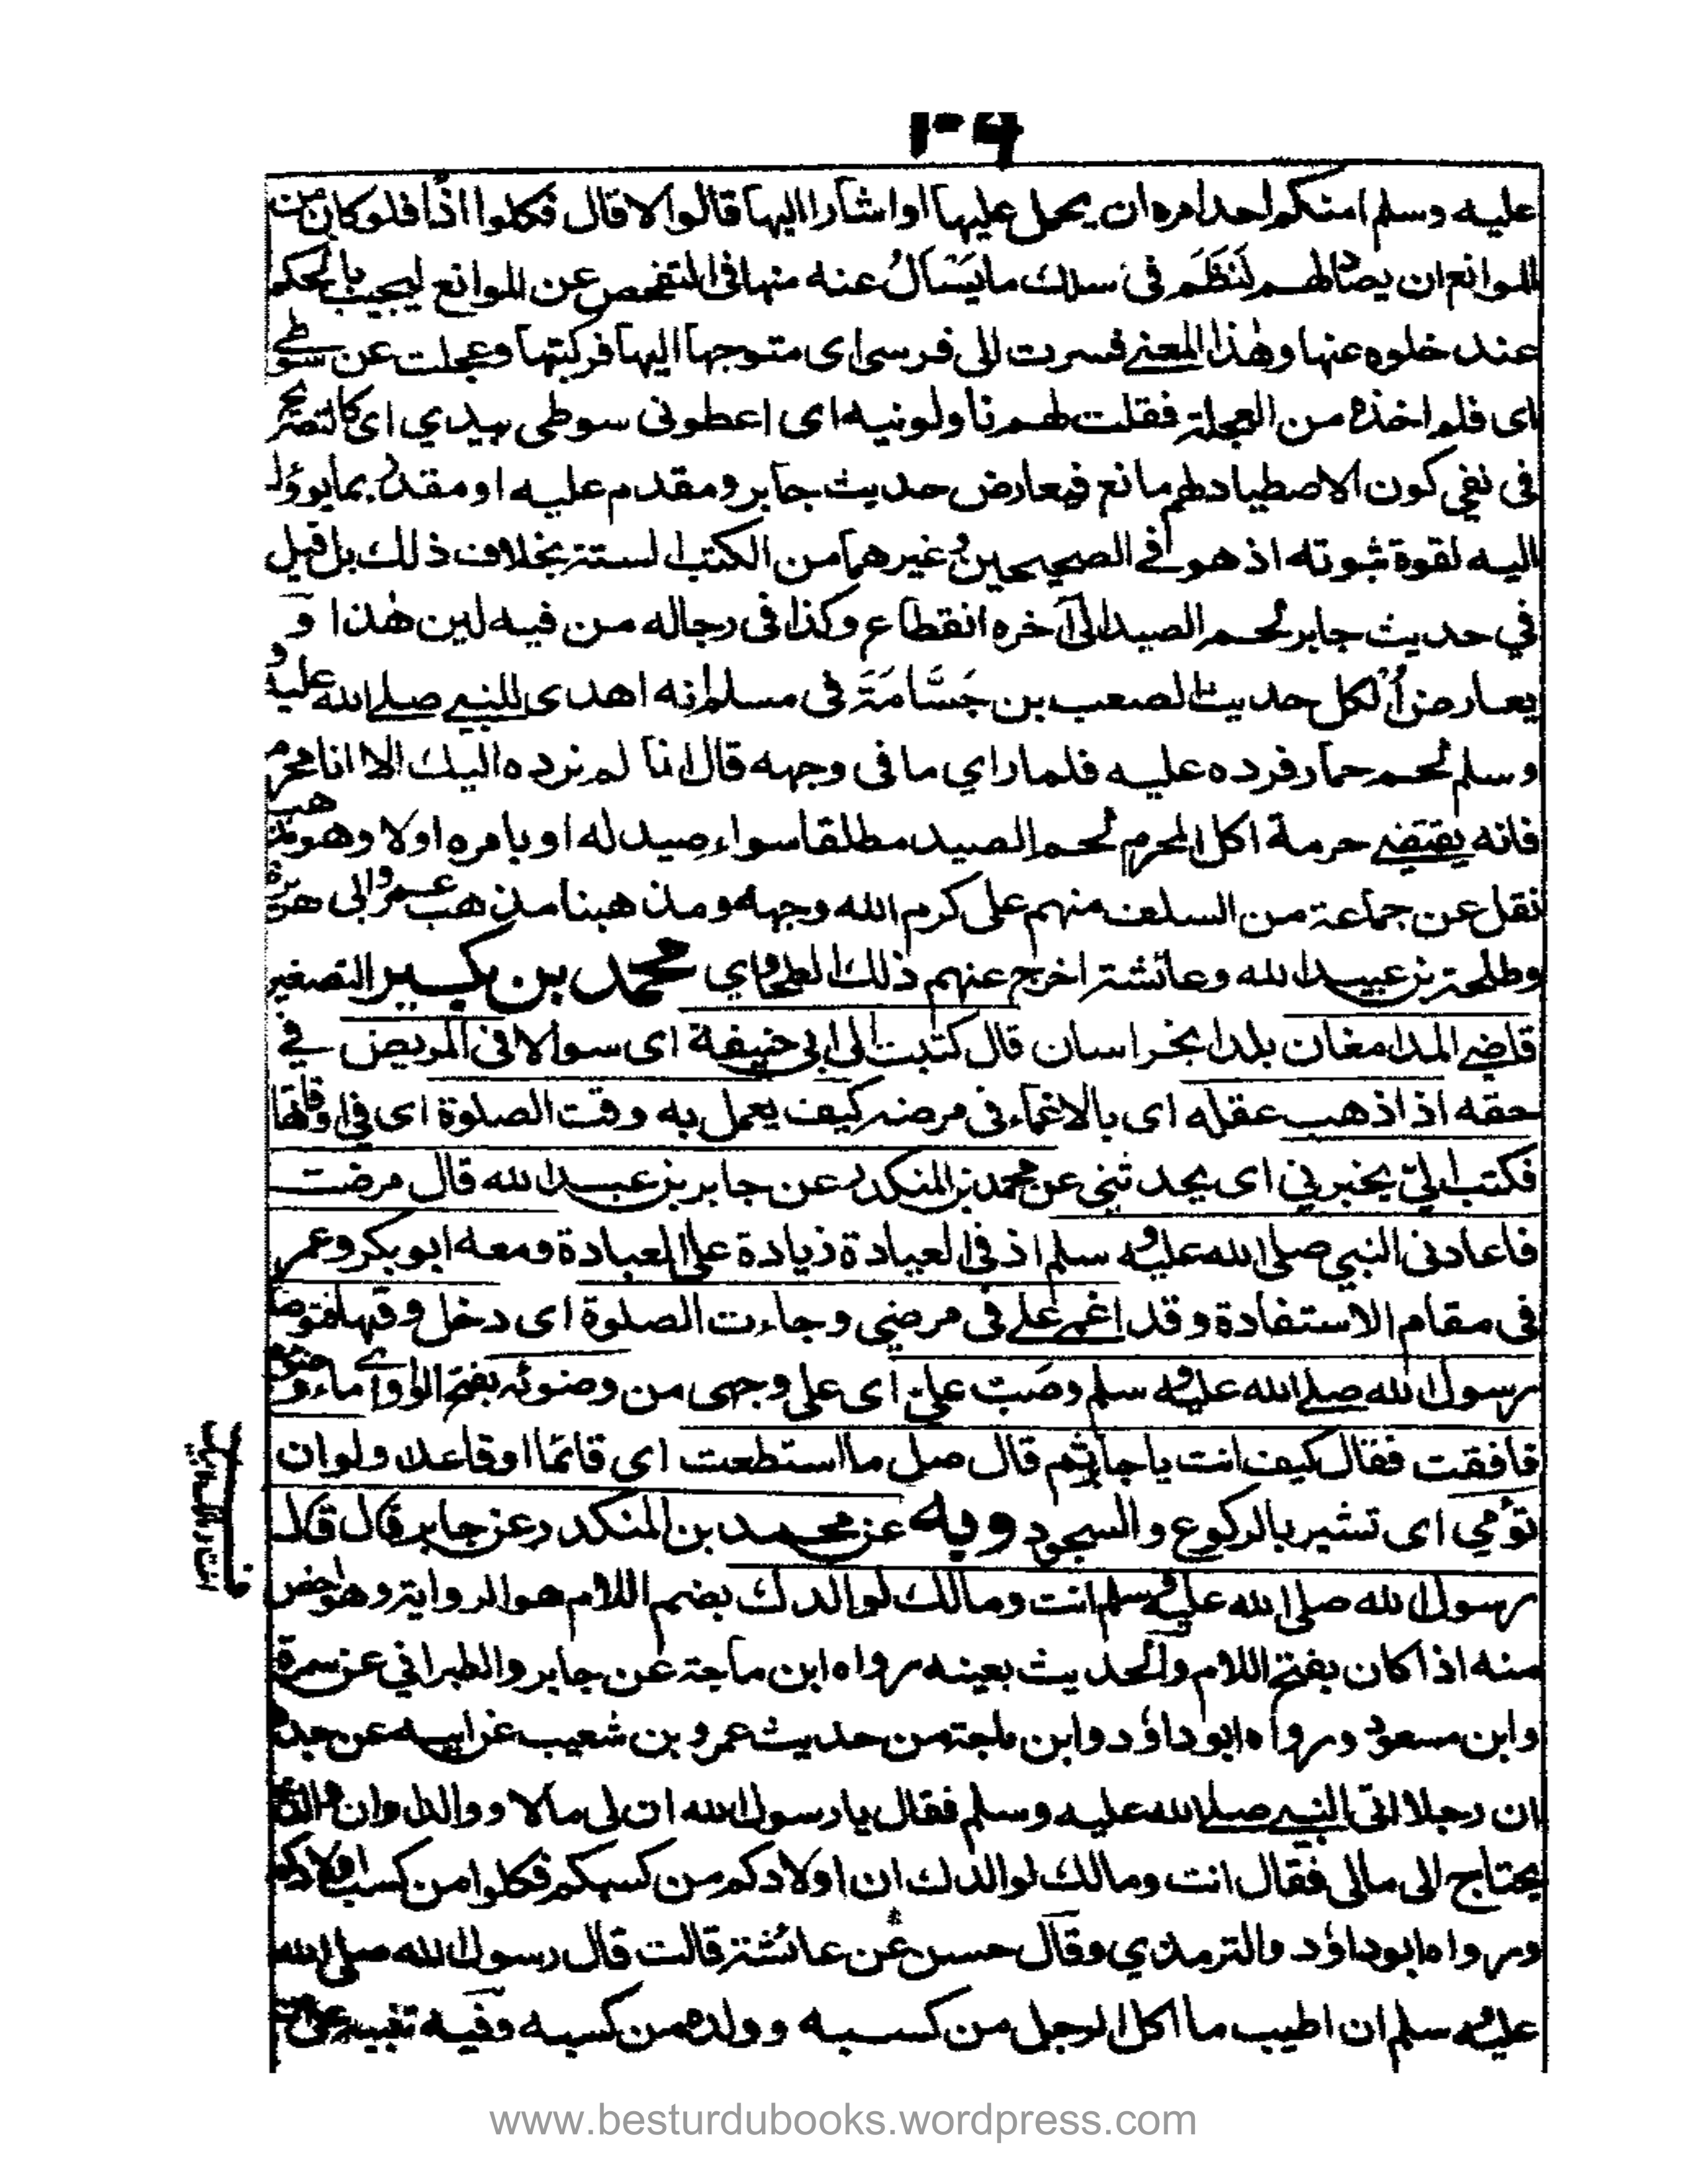 ۱۰۶
عليه وسلم امنكم احدا مره ان يحمل عليها او اشار اليها قالوا لا قال فكلوا اذًا فلو كان من
الموانع ان يصاد لهم لَنَظَمَ فى سلك ما يَسْأَلُ عنه منها فى التفحص عن الموانع ليجيب بالحكم
عند خلوه عنها وهٰذا المعنے فسرت الى فرسى اى متوجها اليها فركبتها وعجلت عن سوطے
اى فلم اخذه من العجلة فقلت لهم ناولونيه اى اعطونى سوطى بيدي اى كالتصريح
فى نفي كون الاصطياد لهم مانع فيعارض حديث جابر ومقدم عليه او مقدر بما يوؤل
اليه لقوة ثبوته اذ هو فے الصحيحين وغيرهما من الكتب الستة بخلاف ذلك بل قيل
في حديث جابر لحم الصيد الى آخره انقطاع وكذا فى رجاله من فيه لين هٰذا و
يعارض الكل حديث الصعب بن جَثَّامَةَ فى مسلم انه اهدى للنبے صلے الله عليه و
وسلم لحم حمار فرده عليه فلما راي ما فى وجهه قال انا لم نرده اليك الا انا محرم
فانه يقتضے حرمة اكل المحرم لحم الصيد مطلقا سواء صيد له او بامره اولا وهو مذهب
نقل عن جماعة من السلف منهم على كرم الله وجهه ومذهبنا مذهب عمر وابى هريرة
وطلحة بن عبيد الله وعائشة اخرج عنهم ذلك الطحاوي محمد بن بكير التصغير
قاضے الدامغان بلد بخراسان قال كتبت الى ابى حنيفة اى سوالا فى المريض فے
حقه اذا ذهب عقله اى بالاغماء فى مرضه كيف يعمل به وقت الصلوة اى فى اوقاتها
فكتب الىّ يخبرني اى يحدثنى عن محمد بن المنكدر عن جابر بن عبد الله قال مرضت
فاعادنى النبي صلى الله عليه و سلم اذ فى العيادة زيادة على العبادة ومعه ابو بكر وعمر
فى مقام الاستفادة وقد اغمى علے فى مرضي وجاءت الصلوة اى دخل وقتها فتوضأ
رسول الله صلے الله عليه و سلم وصَبّ علىّ اى على وجهى من وضوئه بفتح الواو اے ماء
فافقت فقال كيف انت يا جابر ثم قال صل ما استطعت اى قائما او قاعدا ولو ان
تؤمي اى تشير بالركوع والسجود وبه عن محمد بن المنكدر عن جابر قال قال
رسول الله صلى الله عليه و سلم انت ومالك لوالدك بضم اللام هو الرواية وهو اخص
منه اذا كان بفتح اللام والحديث بعينه رواه ابن ماجة عن جابر والطبراني عن سمرة
وابن مسعود ورواه ابو داؤد وابن ماجة من حديث عمرو بن شعيب عن ابيه عن جده
ان رجلا اتى النبے صلے الله عليه وسلم فقال يا رسول الله ان لى مالا ووالدا وان والدى
يحتاج الى مالى فقال انت ومالك لوالدك ان اولادكم من كسبكم فكلوا من كسب اولادكم
ورواه ابو داؤد والترمذي وقال حسن عن عائشة قالت قال رسول الله صلى الله
عليه و سلم ان اطيب ما اكل الرجل من كسبه وولده من كسبه وفيه تنبيه على
www.besturdubooks.wordpress.com